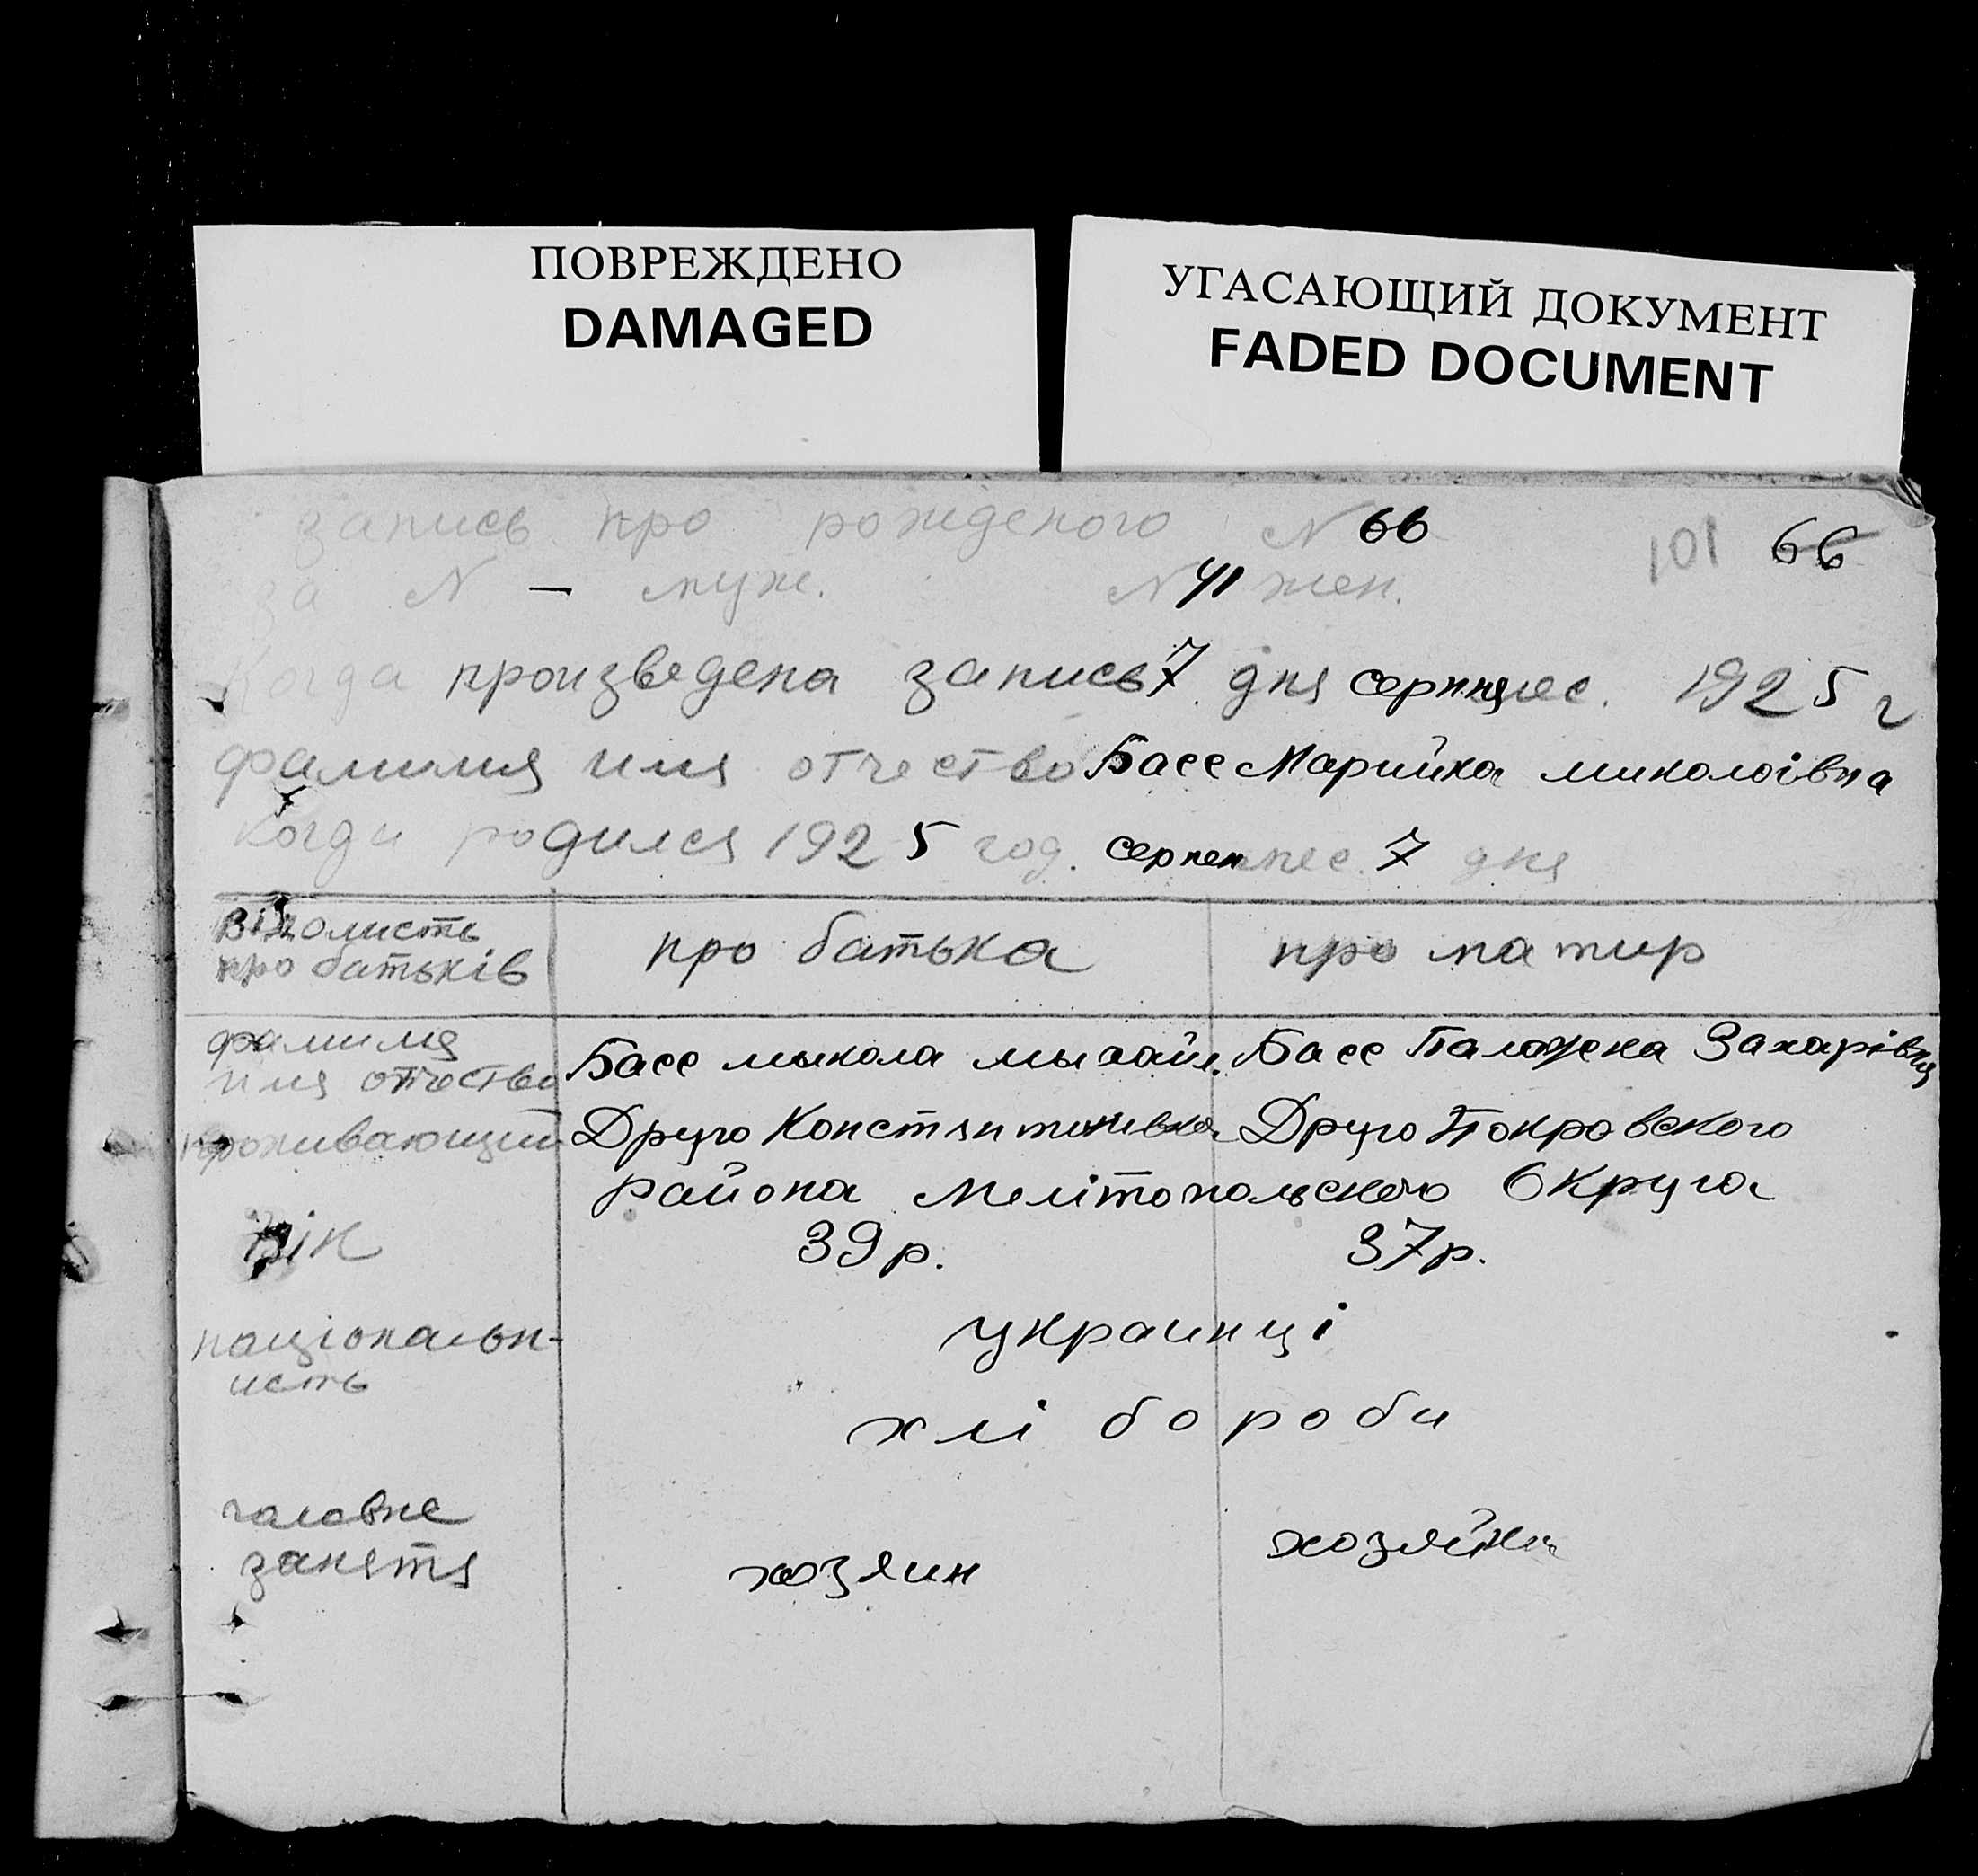 ПОВРЕЖДЕНО
DAMAGED
УГАСАЮЩИЙ ДОКУМЕНТ
FADED DOCUMENT
запись про рожденого N 66
101 66
за N — муж. N 41 жен.
Когда произведена запись 7 дня серпня мес. 1925 г
фамилия имя отчество Басс Марийка миколоівна
Когда родился 1925 год. серпен мес. 7 дня
Відомисть про батька про матир
про батьків
фамилия Басс мыкола мыхайл. Басс Палажка Захарівна
имя отчество
проживающий Друго Константинивка Друго Покровского
района Мелітопольского Округа
вік 39 р. 37 р.
національн- украинці
исть
хлі бороби
головне хозяйка
занятя хозяин